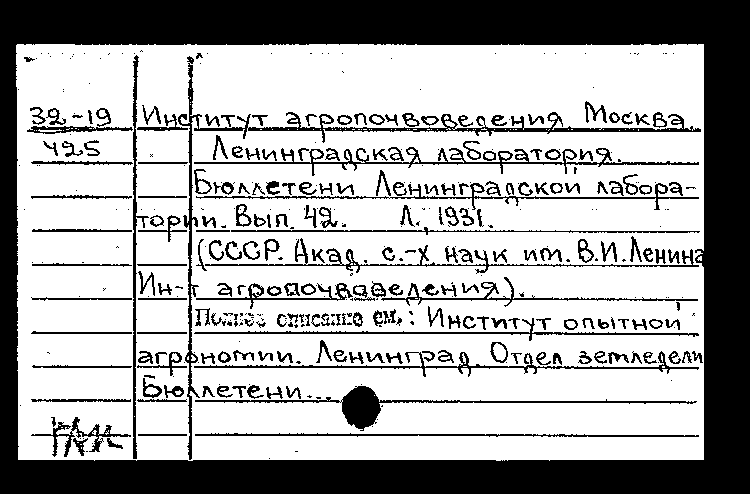 32-19 Институт агропочвоведения. Москва.
425 Ленинградская лаборатория.
Бюллетени Ленинградской лабора-
тории. Вып. 42. Л., 1931.
(СССР. Акад. с.-х. наук им. В.И.Ленина
Ин-т агропочвоведения).
Полное описание см.: Институт опытной
агрономии. Ленинград. Отдел земледели
Бюллетени...